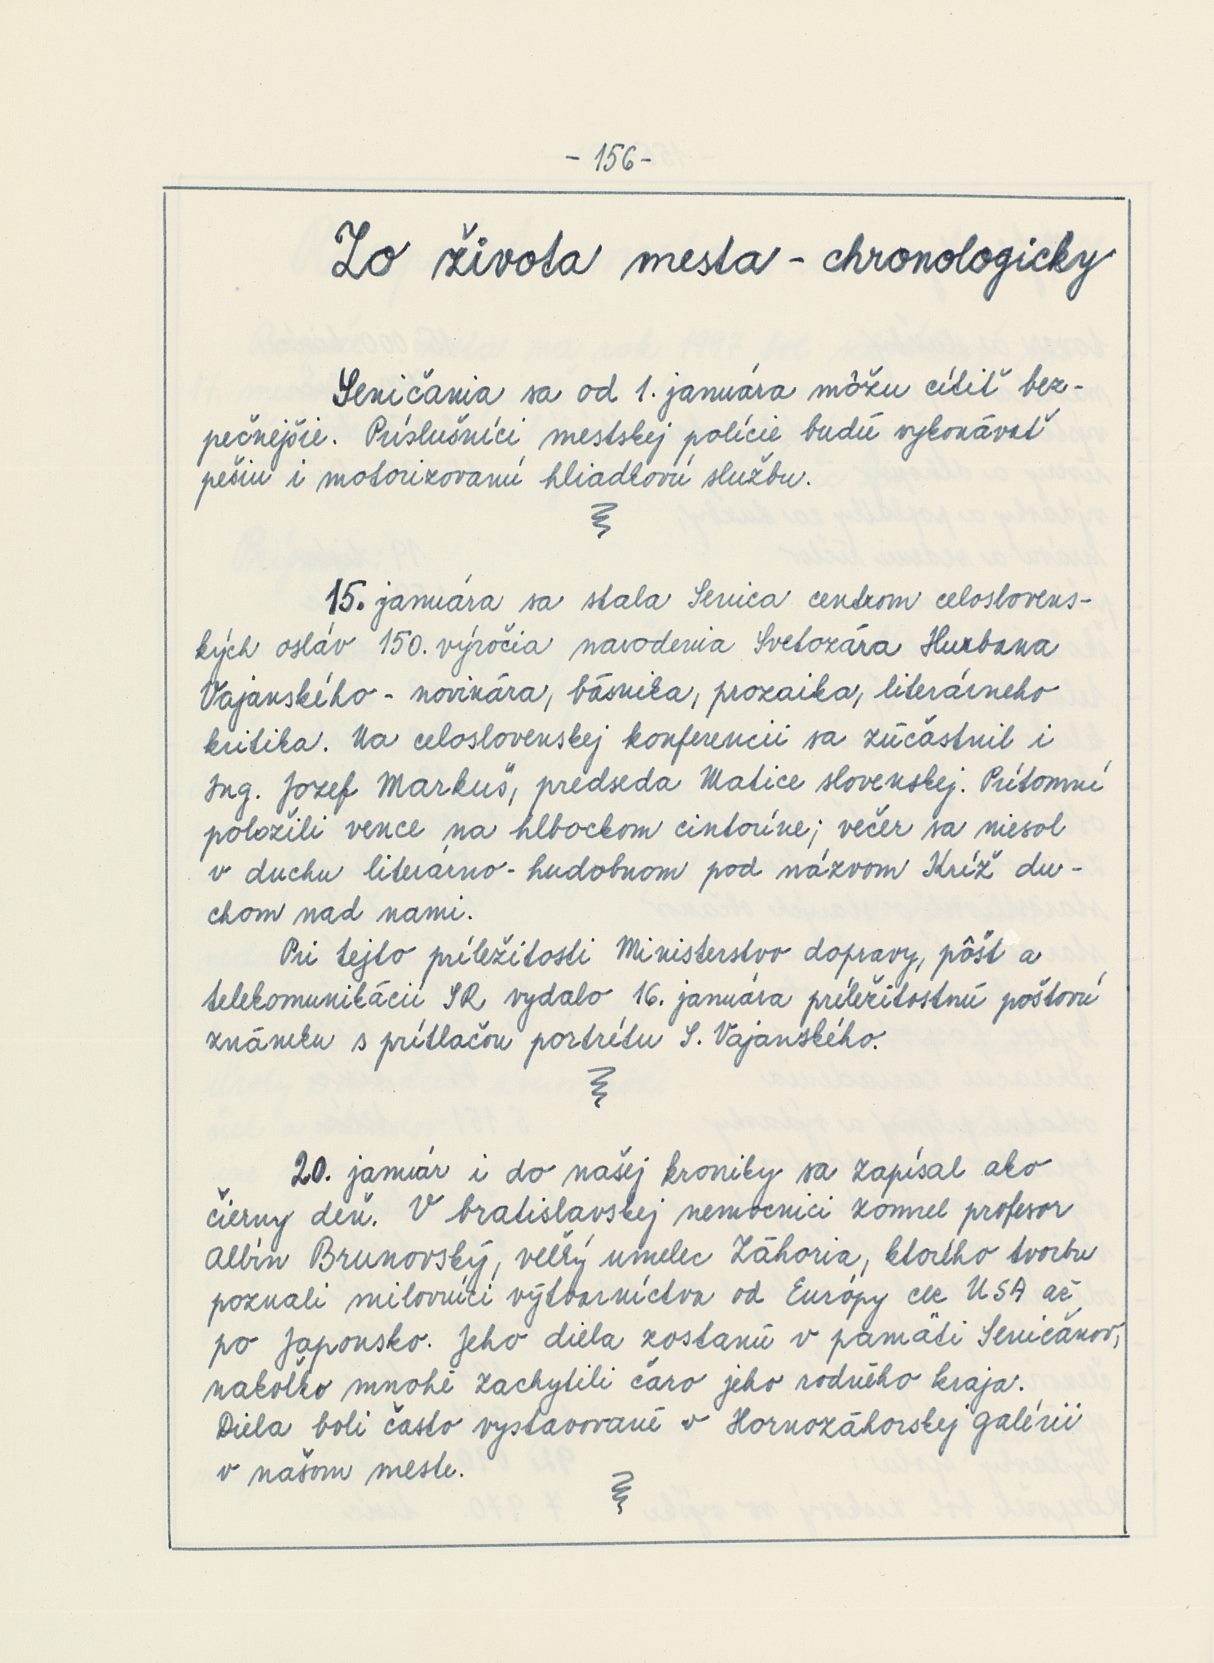 - 156 -
Zo života mesta - chronologicky
Seničania sa od 1. januára môžu cítiť bez-
pečnejšie. Príslušníci mestskej polície budú vykonávať
pešiu i motorizovanú hliadkovú službu.
15. januára sa stala Senica centrom celoslovens-
kých osláv 150. výročia narodenia Svetozára Hurbana
Vajanského - novinára, básnika, prozaika, literárneho
kritika. Na celoslovenskej konferencii sa zúčastnil i
Ing. Jozef Markuš, predseda Matice slovenskej. Prítomní
položili vence na hlbockom cintoríne; večer sa niesol
v duchu literárno - hudobnom pod názvom Kríž du-
chom nad nami.
Pri tejto príležitosti Ministerstvo dopravy, pôšt a
telekomunikácií SR vydalo 16. januára príležitostnú poštovú
známku s prítlačou portrétu S. Vajanského.
20. január i do našej kroniky sa zapísal ako
čierny deň. V bratislavskej nemocnici zomrel profesor
Albín Brunovský, veľký umelec Záhoria, ktorého tvorbu
poznali milovníci výtvarníctva od Európy cez USA až
po Japonsko. Jeho diela zostanú v pamäti Seničanov,
nakoľko mnohé zachytili čaro jeho rodného kraja.
Diela boli často vystavované v Hornozáhorskej galérii
v našom meste.